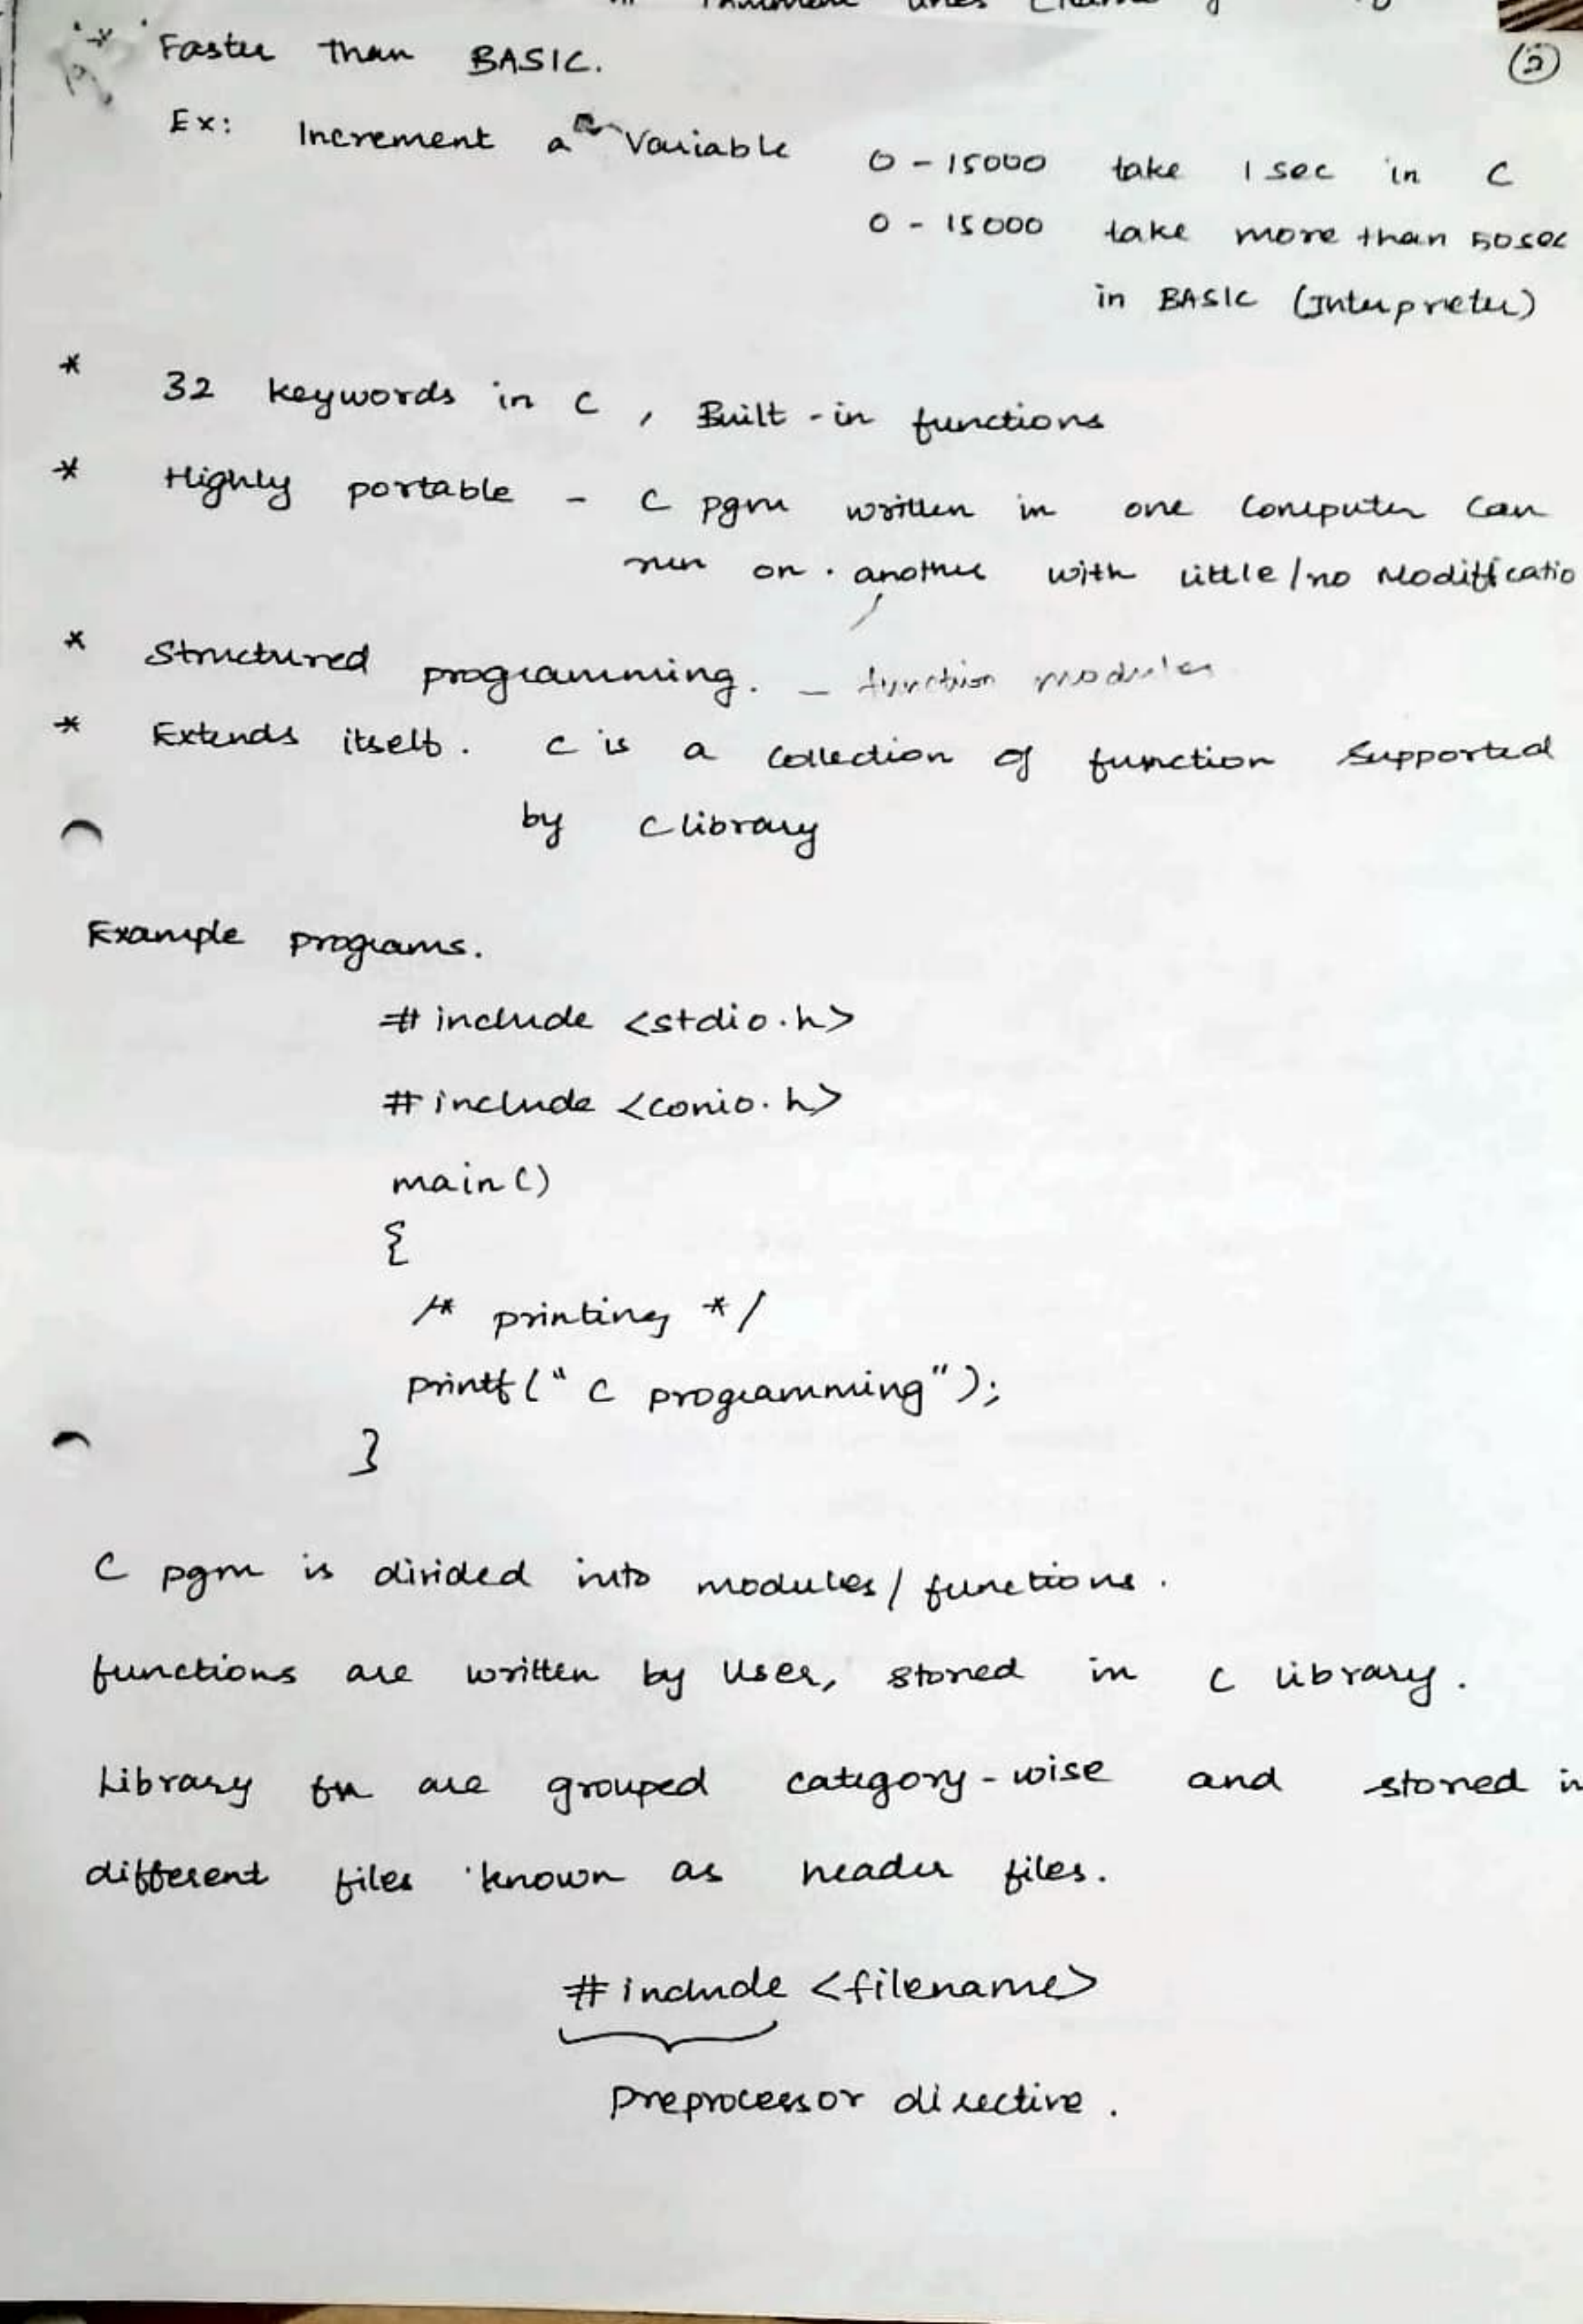 * Faster than BASIC.
(2)
Ex: Increment a Variable 0 - 15000 take 1 sec in C
0 - 15000 take more than 50sec
in BASIC (Interpreter)
* 32 keywords in C , Built-in functions
* Highly portable - C pgm written in one Computer Can
run on . another with little/no Modificatio
* Structured programming. - function modules
* Extends itself. C is a Collection of function Supported
by C library
Example programs.
# include <stdio.h>
# include <conio.h>
main()
{
/* printing */
printf(" C programming");
}
C pgm is divided into modules/functions.
functions are written by User, stored in C library.
Library fn are grouped category-wise and stored in
different files known as header files.
# include <filename>
Preprocessor directive.